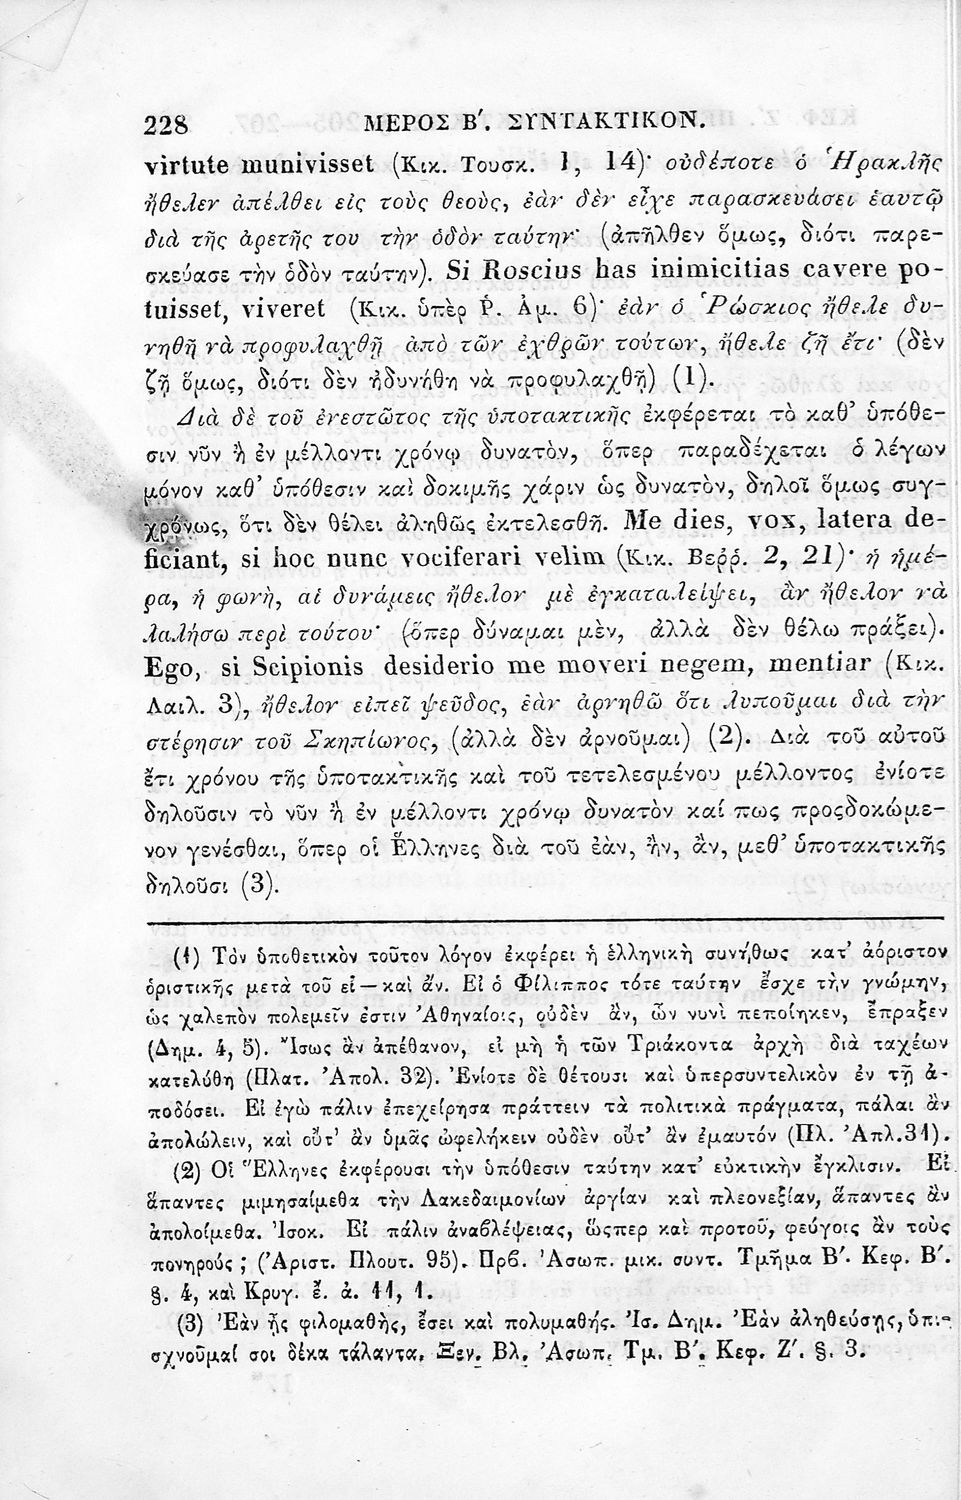 228 ΜΕΡΟΣ Β΄. ΣΥΝΤΑΚΤΙΚΟΝ.
virtute munivisset (Κικ. Τουσκ. 1, 14)· οὐδέποτε ὁ Ἡρακλῆς
ἤθελεν ἀπέλθει εἰς τοὺς θεοὺς, ἐὰν δὲν εἶχε παρασκευάσει ἑαυτῷ
διὰ τῆς ἀρετῆς του τὴν ὁδὸν ταύτην· (ἀπῆλθεν ὅμως, διότι παρε-
σκεύασε τὴν ὁδὸν ταύτην). Si Roscius has inimicitias cavere po-
tuisset, viveret (Κικ. ὑπὲρ Ῥ. Ἀμ. 6)· ἐὰν ὁ Ῥώσκιος ἤθελε δυ-
νηθῆ νὰ προφυλαχθῇ ἀπὸ τῶν ἐχθρῶν τούτων, ἤθελε ζῇ ἔτι· (δὲν
ζῇ ὅμως, διότι δὲν ἠδυνήθη νὰ προφυλαχθῇ) (1).
Διὰ δὲ τοῦ ἐνεστῶτος τῆς ὑποτακτικῆς ἐκφέρεται τὸ καθ’ ὑπόθε-
σιν νῦν ἢ ἐν μέλλοντι χρόνῳ δυνατὸν, ὅπερ παραδέχεται ὁ λέγων
μόνον καθ’ ὑπόθεσιν καὶ δοκιμῆς χάριν ὡς δυνατὸν, δηλοῖ ὅμως συγ-
χρόνως, ὅτι δὲν θέλει ἀληθῶς ἐκτελεσθῆ. Me dies, vox, latera de-
ficiant, si hoc nunc vociferari velim (Κικ. Βεῤῥ. 2, 21)· ἡ ἡμέ-
ρα, ἡ φωνὴ, αἱ δυνάμεις ἤθελον μὲ ἐγκαταλείψει, ἂν ἤθελον νὰ
λαλήσω περὶ τούτου· (ὅπερ δύναμαι μὲν, ἀλλὰ δὲν θέλω πράξει).
Ego, si Scipionis desiderio me moveri negem, mentiar (Κικ.
Λαιλ. 3), ἤθελον εἰπεῖ ψεῦδος, ἐὰν ἀρνηθῶ ὅτι λυποῦμαι διὰ τὴν
στέρησιν τοῦ Σκηπίωνος, (ἀλλὰ δὲν ἀρνοῦμαι) (2). Διὰ τοῦ αὐτοῦ
ἔτι χρόνου τῆς ὑποτακτικῆς καὶ τοῦ τετελεσμένου μέλλοντος ἐνίοτε
δηλοῦσιν τὸ νῦν ἢ ἐν μέλλοντι χρόνῳ δυνατὸν καί πως προςδοκώμε-
νον γενέσθαι, ὅπερ οἱ Ἕλληνες διὰ τοῦ ἐὰν, ἢν, ἂν, μεθ’ ὑποτακτικῆς
δηλοῦσι (3).
(1) Τὸν ὑποθετικὸν τοῦτον λόγον ἐκφέρει ἡ ἑλληνικὴ συνήθως κατ’ ἀόριστον
ὁριστικῆς μετὰ τοῦ εἰ — καὶ ἄν. Εἰ ὁ Φίλιππος τότε ταύτην ἔσχε τὴν γνώμην,
ὡς χαλεπὸν πολεμεῖν ἐστιν Ἀθηναίοις, οὐδὲν ἂν, ὧν νυνὶ πεποίηκεν, ἔπραξεν
(Δημ. 4, 5). Ἴσως ἂν ἀπέθανον, εἰ μὴ ἡ τῶν Τριάκοντα ἀρχὴ διὰ ταχέων
κατελύθη (Πλατ. Ἀπολ. 32). Ἐνίοτε δὲ θέτουσι καὶ ὑπερσυντελικὸν ἐν τῇ ἀ-
ποδόσει. Εἰ ἐγὼ πάλιν ἐπεχείρησα πράττειν τὰ πολιτικὰ πράγματα, πάλαι ἂν
ἀπολώλειν, καὶ οὔτ’ ἂν ὑμᾶς ὠφελήκειν οὐδὲν οὔτ’ ἂν ἐμαυτόν (Πλ. Ἀπλ.31).
(2) Οἱ Ἕλληνες ἐκφέρουσι τὴν ὑπόθεσιν ταύτην κατ’ εὐκτικὴν ἔγκλισιν. Εἰ
ἅπαντες μιμησαίμεθα τὴν Λακεδαιμονίων ἀργίαν καὶ πλεονεξίαν, ἅπαντες ἂν
ἀπολοίμεθα. Ἰσοκ. Εἰ πάλιν ἀναβλέψειας, ὥςπερ καὶ προτοῦ, φεύγοις ἂν τοὺς
πονηρούς ; (Ἀριστ. Πλουτ. 95). Πρβ. Ἀσωπ. μικ. συντ. Τμῆμα Β΄. Κεφ. Β΄.
§. 4, καὶ Κρυγ. ἔ. ἀ. 11, 1.
(3) Ἐὰν ᾖς φιλομαθὴς, ἔσει καὶ πολυμαθής. Ἰσ. Δημ. Ἐὰν ἀληθεύσῃς, ὑπι-
σχνοῦμαί σοι δέκα τάλαντα. Ξεν. Βλ. Ἀσωπ. Τμ. Β΄. Κεφ. Ζ΄. §. 3.